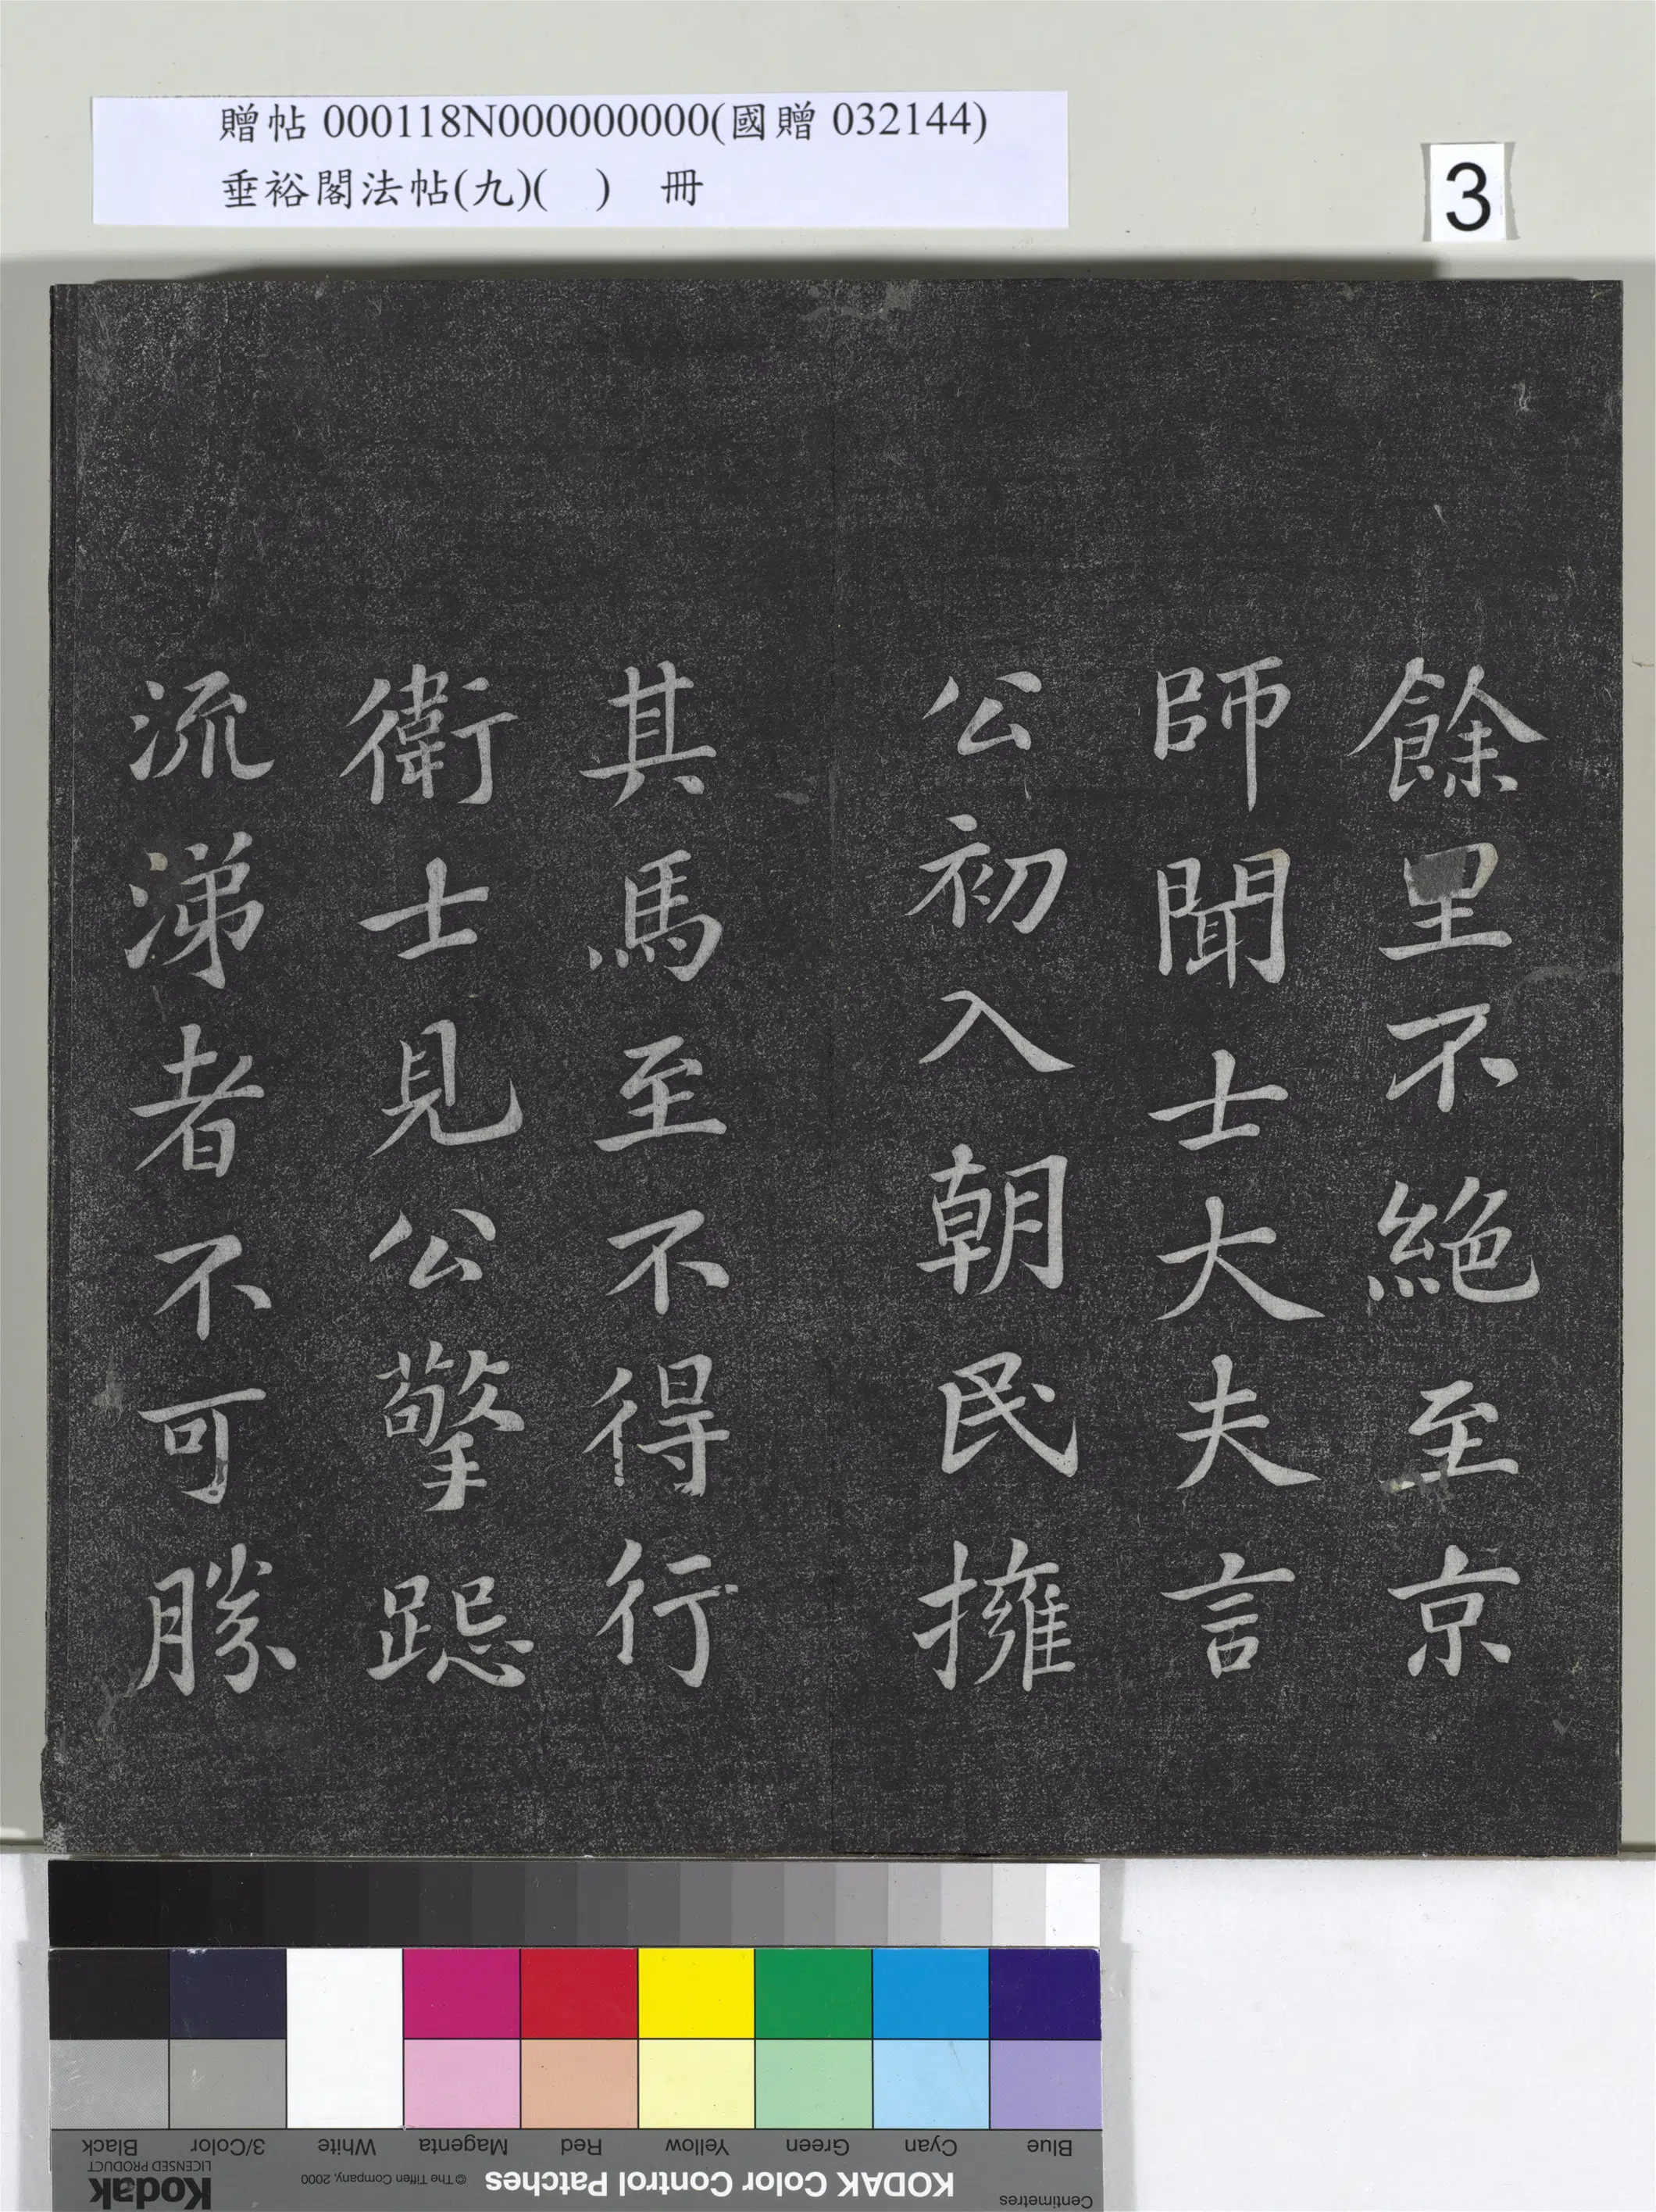 贈帖 000118N000000000(國贈 032144)
垂裕閣法帖(九)(　) 冊
3
餘里不絕至京
師聞士大夫言
公初入朝民擁
其馬至不得行
衛士見公擎跽
流涕者不可勝
Blue Cyan Green Yellow Red Magenta White 3/Color Black
Centimetres
KODAK Color Control Patches © The Tiffen Company, 2000 Kodak
LICENSED PRODUCT